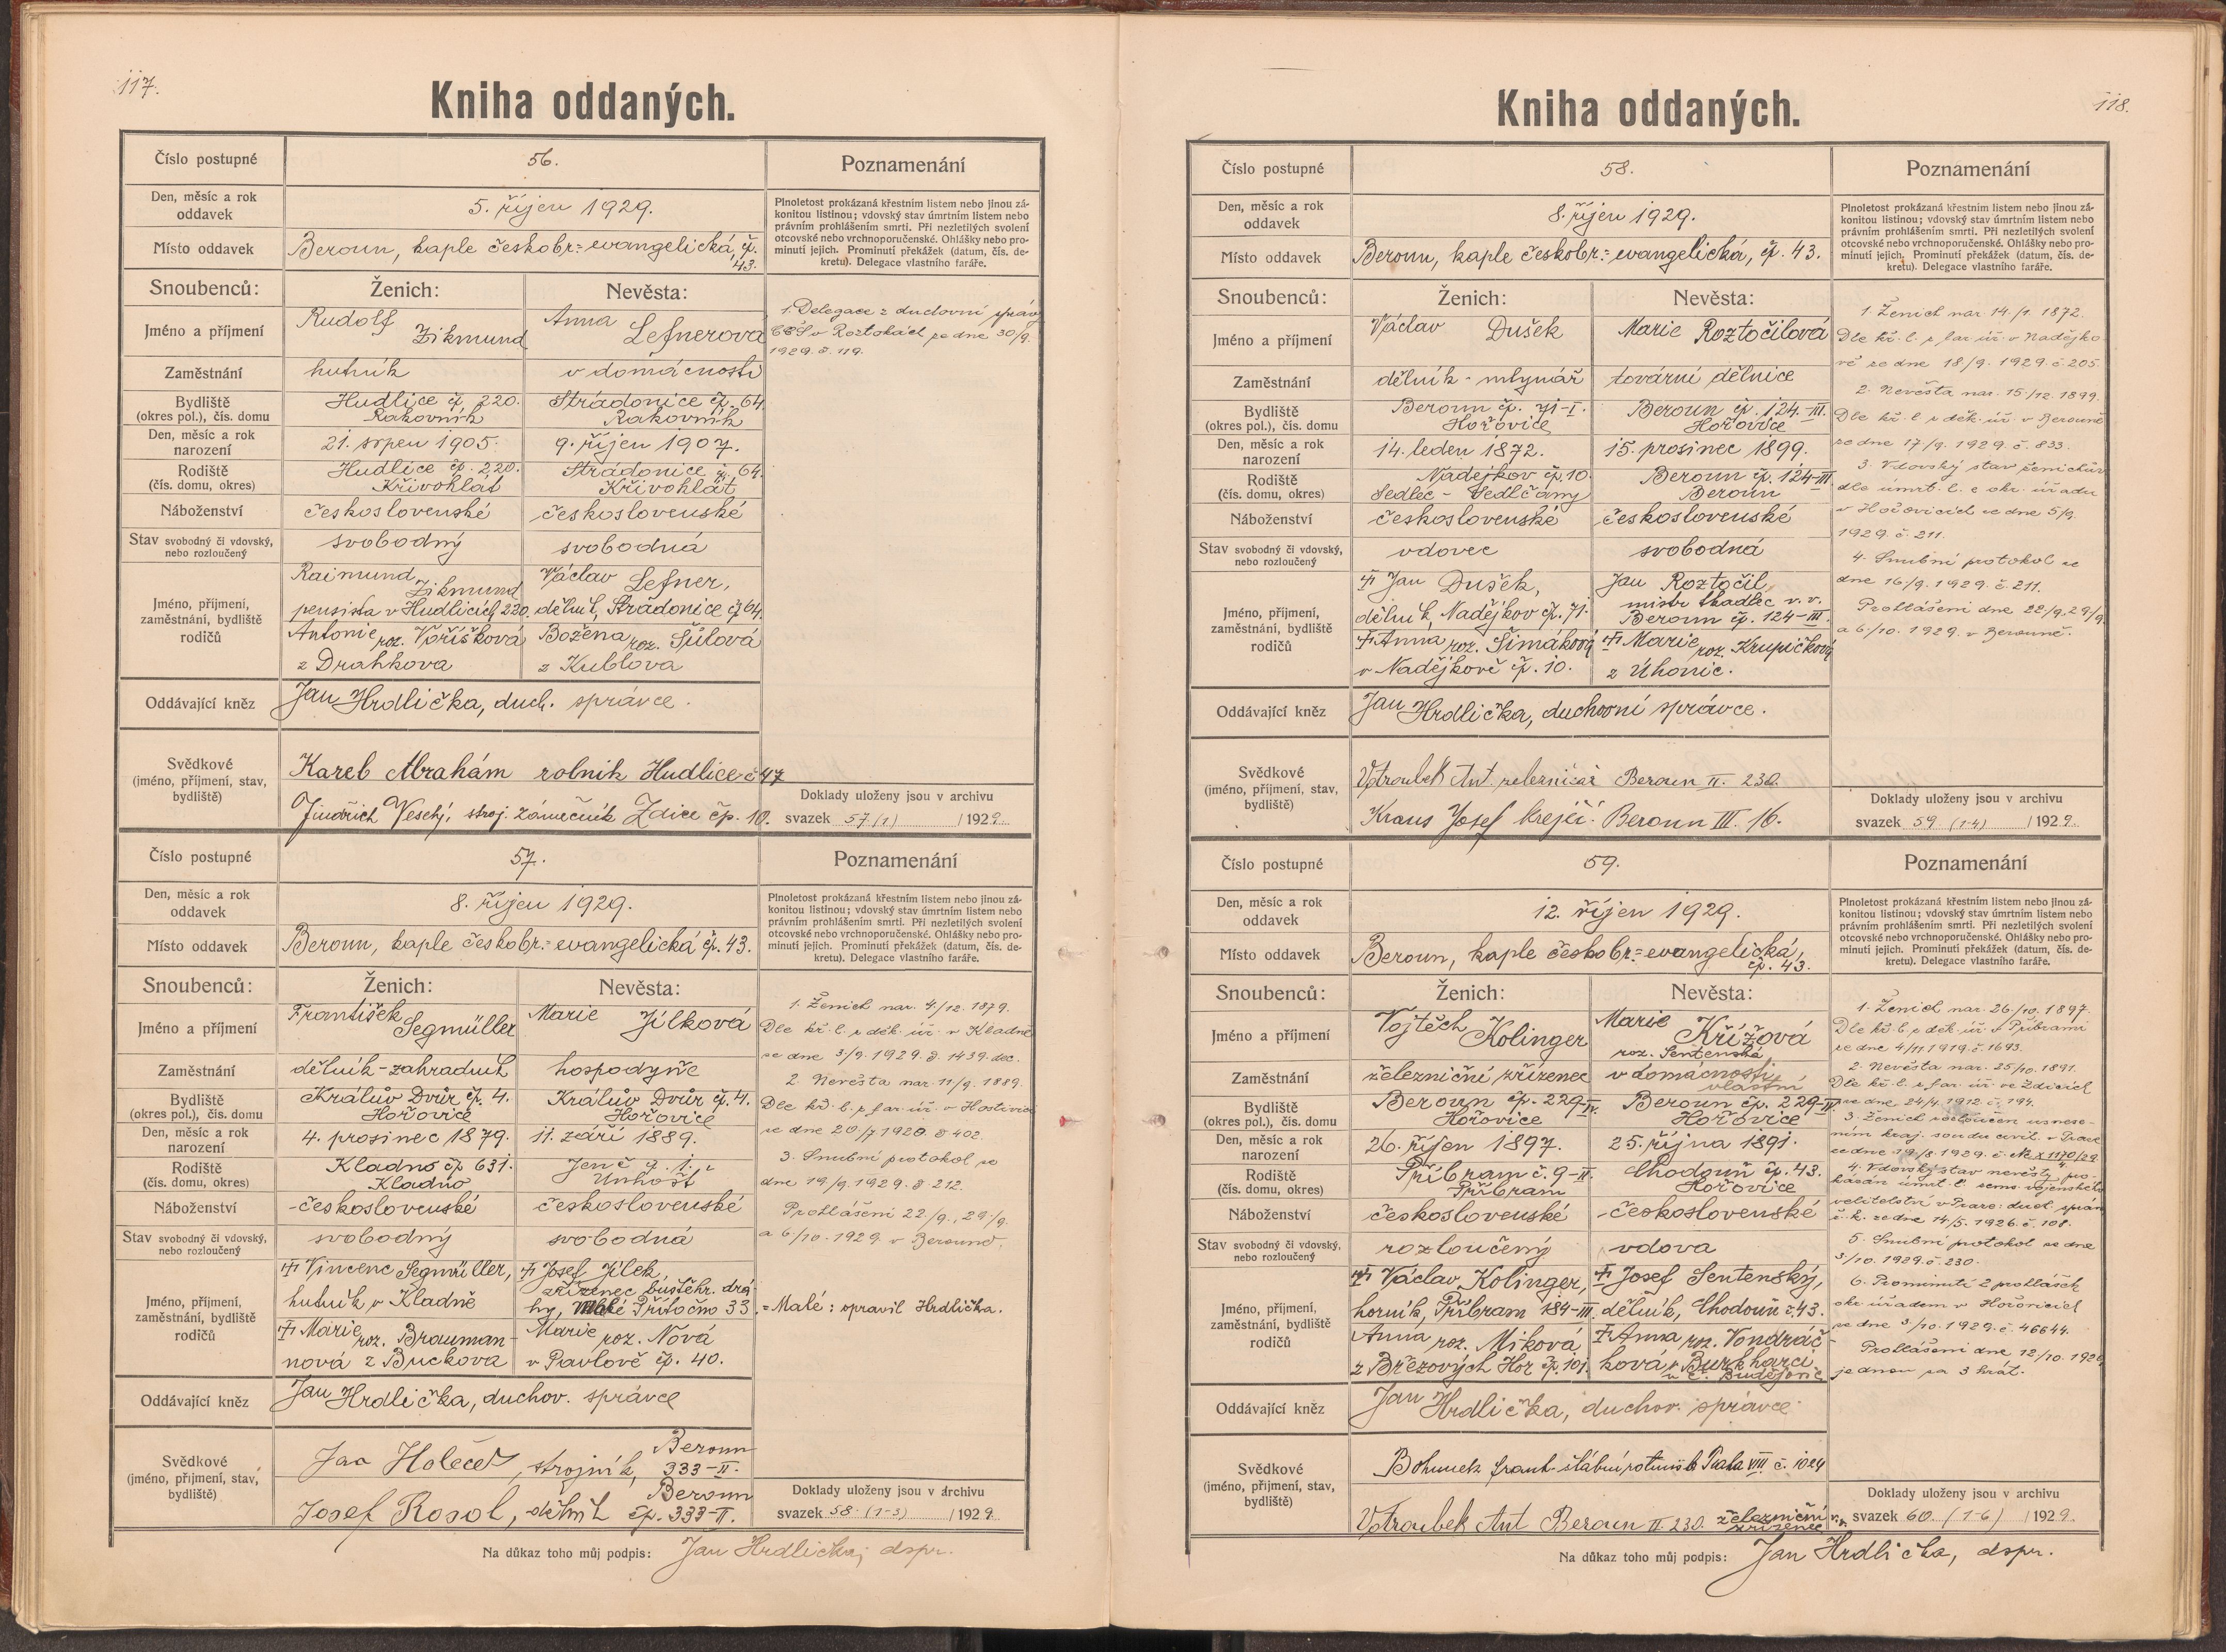 117.
Kniha oddaných.
Číslo postupné
56.
Poznamenání
Den, měsíc a rok
oddavek
5. říjen 1929.
Plnoletost prokázaná křestním listem nebo jinou zá-
konitou listinou; vdovský stav úmrtním listem nebo
právním prohlášením smrti. Při nezletilých svolení
otcovské nebo vrchnoporučenské. Ohlášky nebo pro-
minutí jejich. Prominutí překážek (datum, čís. de-
kretu). Delegace vlastního faráře.
Místo oddavek
Beroun, kaple českobr.=evangelická, č.
43.
Snoubenců:
Ženich:
Nevěsta:
Jméno a příjmení
Rudolf
Zikmund
Anna
Lefnerová
1. Delegace z duchovní správy
CČS v Roztokách ze dne 30/9.
1929. č. 119.
Zaměstnání
hutník
v domácnosti
Bydliště
(okres pol.), čís. domu
Hudlice č. 220.
Rakovník
Strádonice čp. 64.
Rakovník
Den, měsíc a rok
narození
21. srpen 1905.
9. říjen 1907.
Rodiště
(čís. domu, okres)
Hudlice čp. 220.
Křivoklát
Strádonice čp. 64.
Křivoklát
Náboženství
československé
československé
Stav svobodný či vdovský,
nebo rozloučený
svobodný
svobodná
Jméno, příjmení,
zaměstnání, bydliště
rodičů
Raimund
Zikmund
pensista v Hudlicích 220.
Antonie roz. Voříšková
z Drahkova
Václav Lefner,
dělník, Strádonice čp 64.
Božena roz. Šůlová
z Kublova
Oddávající kněz
Jan Hrdlička, duch. správce.
Svědkové
(jméno, příjmení, stav,
bydliště)
Karel Abrahám rolník Hudlice č 47
Jindřich Veselý, stroj. zámečník Zdice čp. 10.
Doklady uloženy jsou v archivu
svazek 57 (1) /1929.
Číslo postupné
57.
Poznamenání
Den, měsíc a rok
oddavek
8. říjen 1929.
Plnoletost prokázaná křestním listem nebo jinou zá-
konitou listinou; vdovský stav úmrtním listem nebo
právním prohlášením smrti. Při nezletilých svolení
otcovské nebo vrchnoporučenské. Ohlášky nebo pro-
minutí jejich. Prominutí překážek (datum, čís. de-
kretu). Delegace vlastního faráře.
Místo oddavek
Beroun, kaple českobr.=evangelická čp. 43.
Snoubenců:
Ženich:
Nevěsta:
Jméno a příjmení
František
Segmüller
Marie Jílková
1. Ženich nar. 4/12. 1879.
Dle kř. l. z děk. úř. v Kladně
ze dne 3/9. 1929. č. 1439. dec.
2. Nevěsta nar. 11/9. 1889.
Dle kř. l. z far. úř. v Hostivici
ze dne 20/7 1920. č 402.
3. Snubní protokol ze
dne 19/9. 1929. č. 212.
Prohlášení 22./9., 29./9.
a 6/10. 1929. v Berouně.
Zaměstnání
dělník-zahradník
hospodyně
Bydliště
(okres pol.), čís. domu
Králův Dvůr čp. 4.
Hořovice
Králův Dvůr čp. 4.
Hořovice
Den, měsíc a rok
narození
4. prosinec 1879.
11. září 1889.
Rodiště
(čís. domu, okres)
Kladno čp 631.
Kladno
Jeneč 9. 1.
Unhošť
Náboženství
československé
československé
Stav svobodný či vdovský,
nebo rozloučený
svobodný
svobodná
Jméno, příjmení,
zaměstnání, bydliště
rodičů
† Vincenc Segmüller,
hutník v Kladně
† Marie roz. Brauman-
nová z Buckova
† Josef Jílek,
zřízenec buštěhr. drá-
hy, Malé Přítočno 33.
Marie roz. Nová
v Pavlově čp. 40.
= Malé: opravil Hrdlička.
Oddávající kněz
Jan Hrdlička, duchov. správce
Svědkové
(jméno, příjmení, stav,
bydliště)
Jan Holeček, strojník, Beroun
333-II.
Josef Kosol, dělník Beroun
čp. 333-II.
Doklady uloženy jsou v archivu
svazek 58. (1-3) /1929.
Na důkaz toho můj podpis: Jan Hrdlička, dspr.
118.
Kniha oddaných.
Číslo postupné
58.
Poznamenání
Den, měsíc a rok
oddavek
8. říjen 1929.
Plnoletost prokázaná křestním listem nebo jinou zá-
konitou listinou; vdovský stav úmrtním listem nebo
právním prohlášením smrti. Při nezletilých svolení
otcovské nebo vrchnoporučenské. Ohlášky nebo pro-
minutí jejich. Prominutí překážek (datum, čís. de-
kretu). Delegace vlastního faráře.
Místo oddavek
Beroun, kaple českobr.=evangelická, čp. 43.
Snoubenců:
Ženich:
Nevěsta:
Jméno a příjmení
Václav Dušek
Marie Roztočilová
1. Ženich nar. 14./1. 1872.
Dle kř. l. z far. úř. v Nadějko-
vě ze dne 18/9. 1929 č. 205.
2. Nevěsta nar. 15/12. 1899.
Dle kř. l. z děk. úř. v Berouně
ze dne 17/9. 1929. č. 833.
3. Vdovský stav ženichův
dle úmrt. l. z okr. úřadu
v Hořovicích ze dne 5/9.
1929. č. 211.
4. Snubní protokol ze
dne 16/9. 1929. č. 211.
Prohlášení dne 22/9, 29/9.
a 6/10. 1929. v Berouně.
Zaměstnání
dělník - mlynář
tovární dělnice
Bydliště
(okres pol.), čís. domu
Beroun čp. 71-I.
Hořovice
Beroun čp. 124-III.
Hořovice
Den, měsíc a rok
narození
14. leden 1872.
15. prosinec 1899.
Rodiště
(čís. domu, okres)
Nadějkov čp. 10.
Sedlec - Sedlčany
Beroun čp. 124-III
Beroun
Náboženství
československé
československé
Stav svobodný či vdovský,
nebo rozloučený
vdovec
svobodná
Jméno, příjmení,
zaměstnání, bydliště
rodičů
† Jan Dušek,
dělník, Nadějkov čp. 71.
† Anna roz. Šimáková
v Nadějkově čp. 10.
Jan Roztočil,
mistr tkadlec v. v.
Beroun čp. 124-III.
† Marie roz. Krupičková
z Úhonic.
Oddávající kněz
Jan Hrdlička, duchovní správce.
Svědkové
(jméno, příjmení, stav,
bydliště)
Votroubek Ant. železničář Beroun II. 230.
Kraus Josef krejčí. Beroun III. 16.
Doklady uloženy jsou v archivu
svazek 59 (1-4) /1929.
Číslo postupné
59.
Poznamenání
Den, měsíc a rok
oddavek
12. říjen 1929.
Plnoletost prokázaná křestním listem nebo jinou zá-
konitou listinou; vdovský stav úmrtním listem nebo
právním prohlášením smrti. Při nezletilých svolení
otcovské nebo vrchnoporučenské. Ohlášky nebo pro-
minutí jejich. Prominutí překážek (datum, čís. de-
kretu). Delegace vlastního faráře.
Místo oddavek
Beroun, kaple českobr.=evangelická,
čp. 43.
Snoubenců:
Ženich:
Nevěsta:
Jméno a příjmení
Vojtěch
Kolinger
Marie
Křížová
roz. Sentenská
1. Ženich nar. 26/10. 1897.
Dle kř. l. z děk. úř. v Příbrami
ze dne 4/11 1919. č. 1693.
2. Nevěsta nar. 25/10. 1891.
Dle kř. l. z far. úř. ve Zdicích
ze dne 24/4. 1912. č. 194.
3. Ženich rozloučen usnese-
ním kraj. soudu civil. v Praze
ze dne 19/8. 1929. č. Nc X 1170/29.
4. Vdovský stav nevěsty pro-
kázán úmrt. l. zems. vojenského
velitelství v Praze: duch. správ.
č. k. ze dne 14/5. 1926. č. 108.
5. Snubní protokol ze dne
3/10. 1929. č. 230.
6. Prominutí 2 prohlášek
okr. úřadem v Hořovicích
ze dne 3/10. 1929. č. 46644.
Prohlášení dne 12/10. 1929
jednou za 3 krát.
Zaměstnání
železniční zřízenec
v domácnosti
vlastní
Bydliště
(okres pol.), čís. domu
Beroun čp. 229-II.
Hořovice
Beroun čp. 229-II
Hořovice
Den, měsíc a rok
narození
26. říjen 1897.
25. října 1891.
Rodiště
(čís. domu, okres)
Příbram č. 9-II.
Příbram
Chodouň čp. 43.
Hořovice
Náboženství
československé
československé
Stav svobodný či vdovský,
nebo rozloučený
rozloučený
vdova
Jméno, příjmení,
zaměstnání, bydliště
rodičů
† Václav Kolinger,
horník, Příbram 184-III.
Anna roz. Miková
z Březových Hor čp. 101.
† Josef Sentenský,
dělník, Chodouň č 43.
† Anna roz. Vondráč-
ková, z Burkharci
u Č. Budějovic
Oddávající kněz
Jan Hrdlička, duchov. správce.
Svědkové
(jméno, příjmení, stav,
bydliště)
Bohumek frant. štábní rotmistr Praha VIII. č. 1024
Votroubek Ant Beroun II. 230. železniční
zřízenec v.v.
Doklady uloženy jsou v archivu
svazek 60 (1-6) /1929.
Na důkaz toho můj podpis: Jan Hrdlička, dspr.